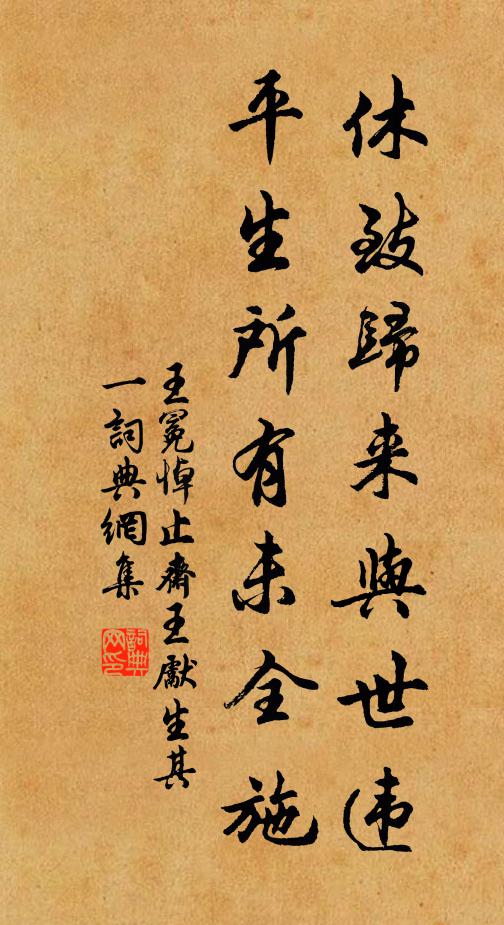 休致歸来與世违
平生所有未全施
王冕悼止齋王獻生其
一詞典網集
詞典网印